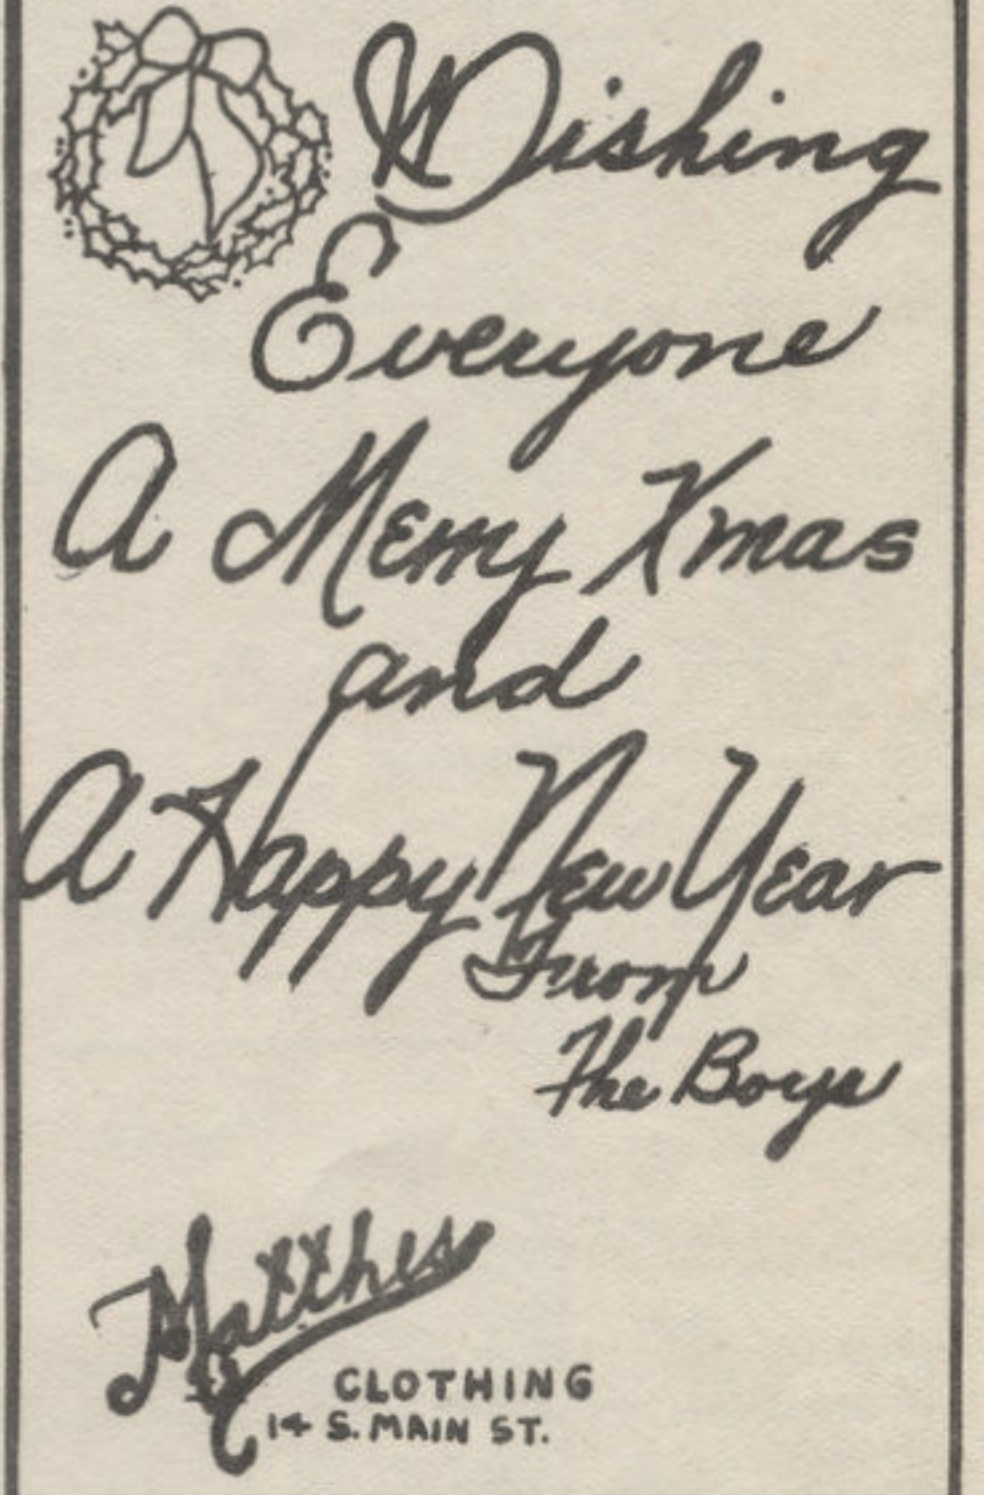 Wishing
Everyone
A Merry Xmas
and
A Happy New Year
From
The Boys
Matthes
CLOTHING
14 S. MAIN ST.